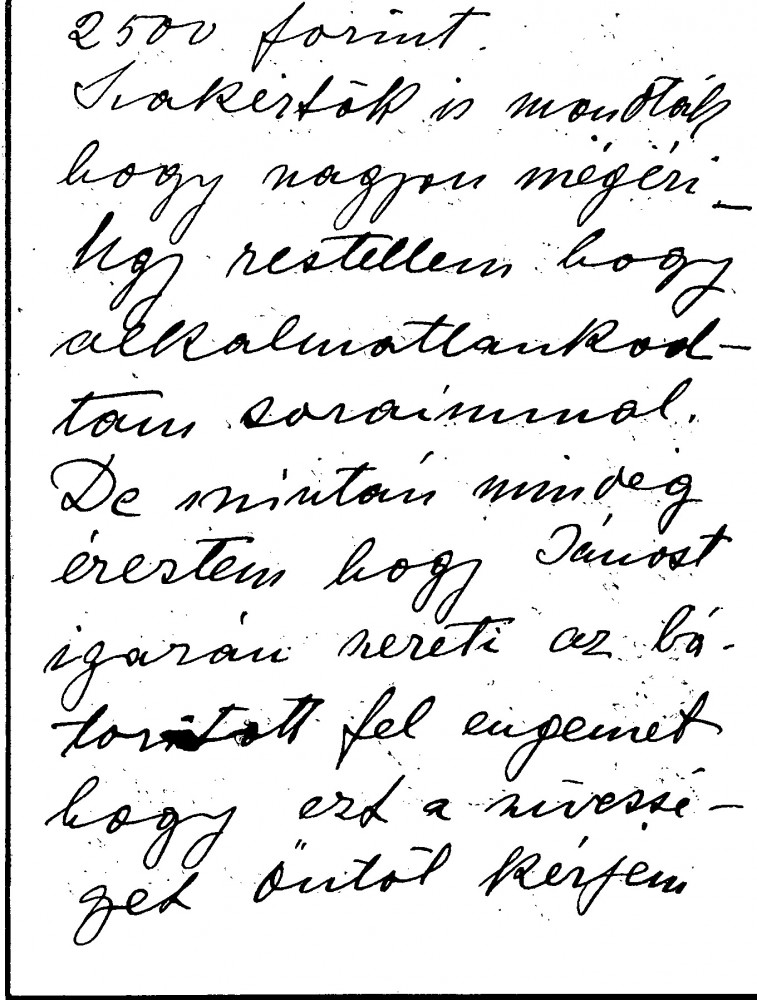 2500 forint.
Szakértők is mondták
hogy nagyon mégéri_
Úgy restellem hogy
alkalmatlankod-
tam soraimmal.
De miután mindég
éreztem hogy Jánost
igazán szereti az bá-
torított fel engemet
hogy ezt a szívessé-
get Öntöl kérjem